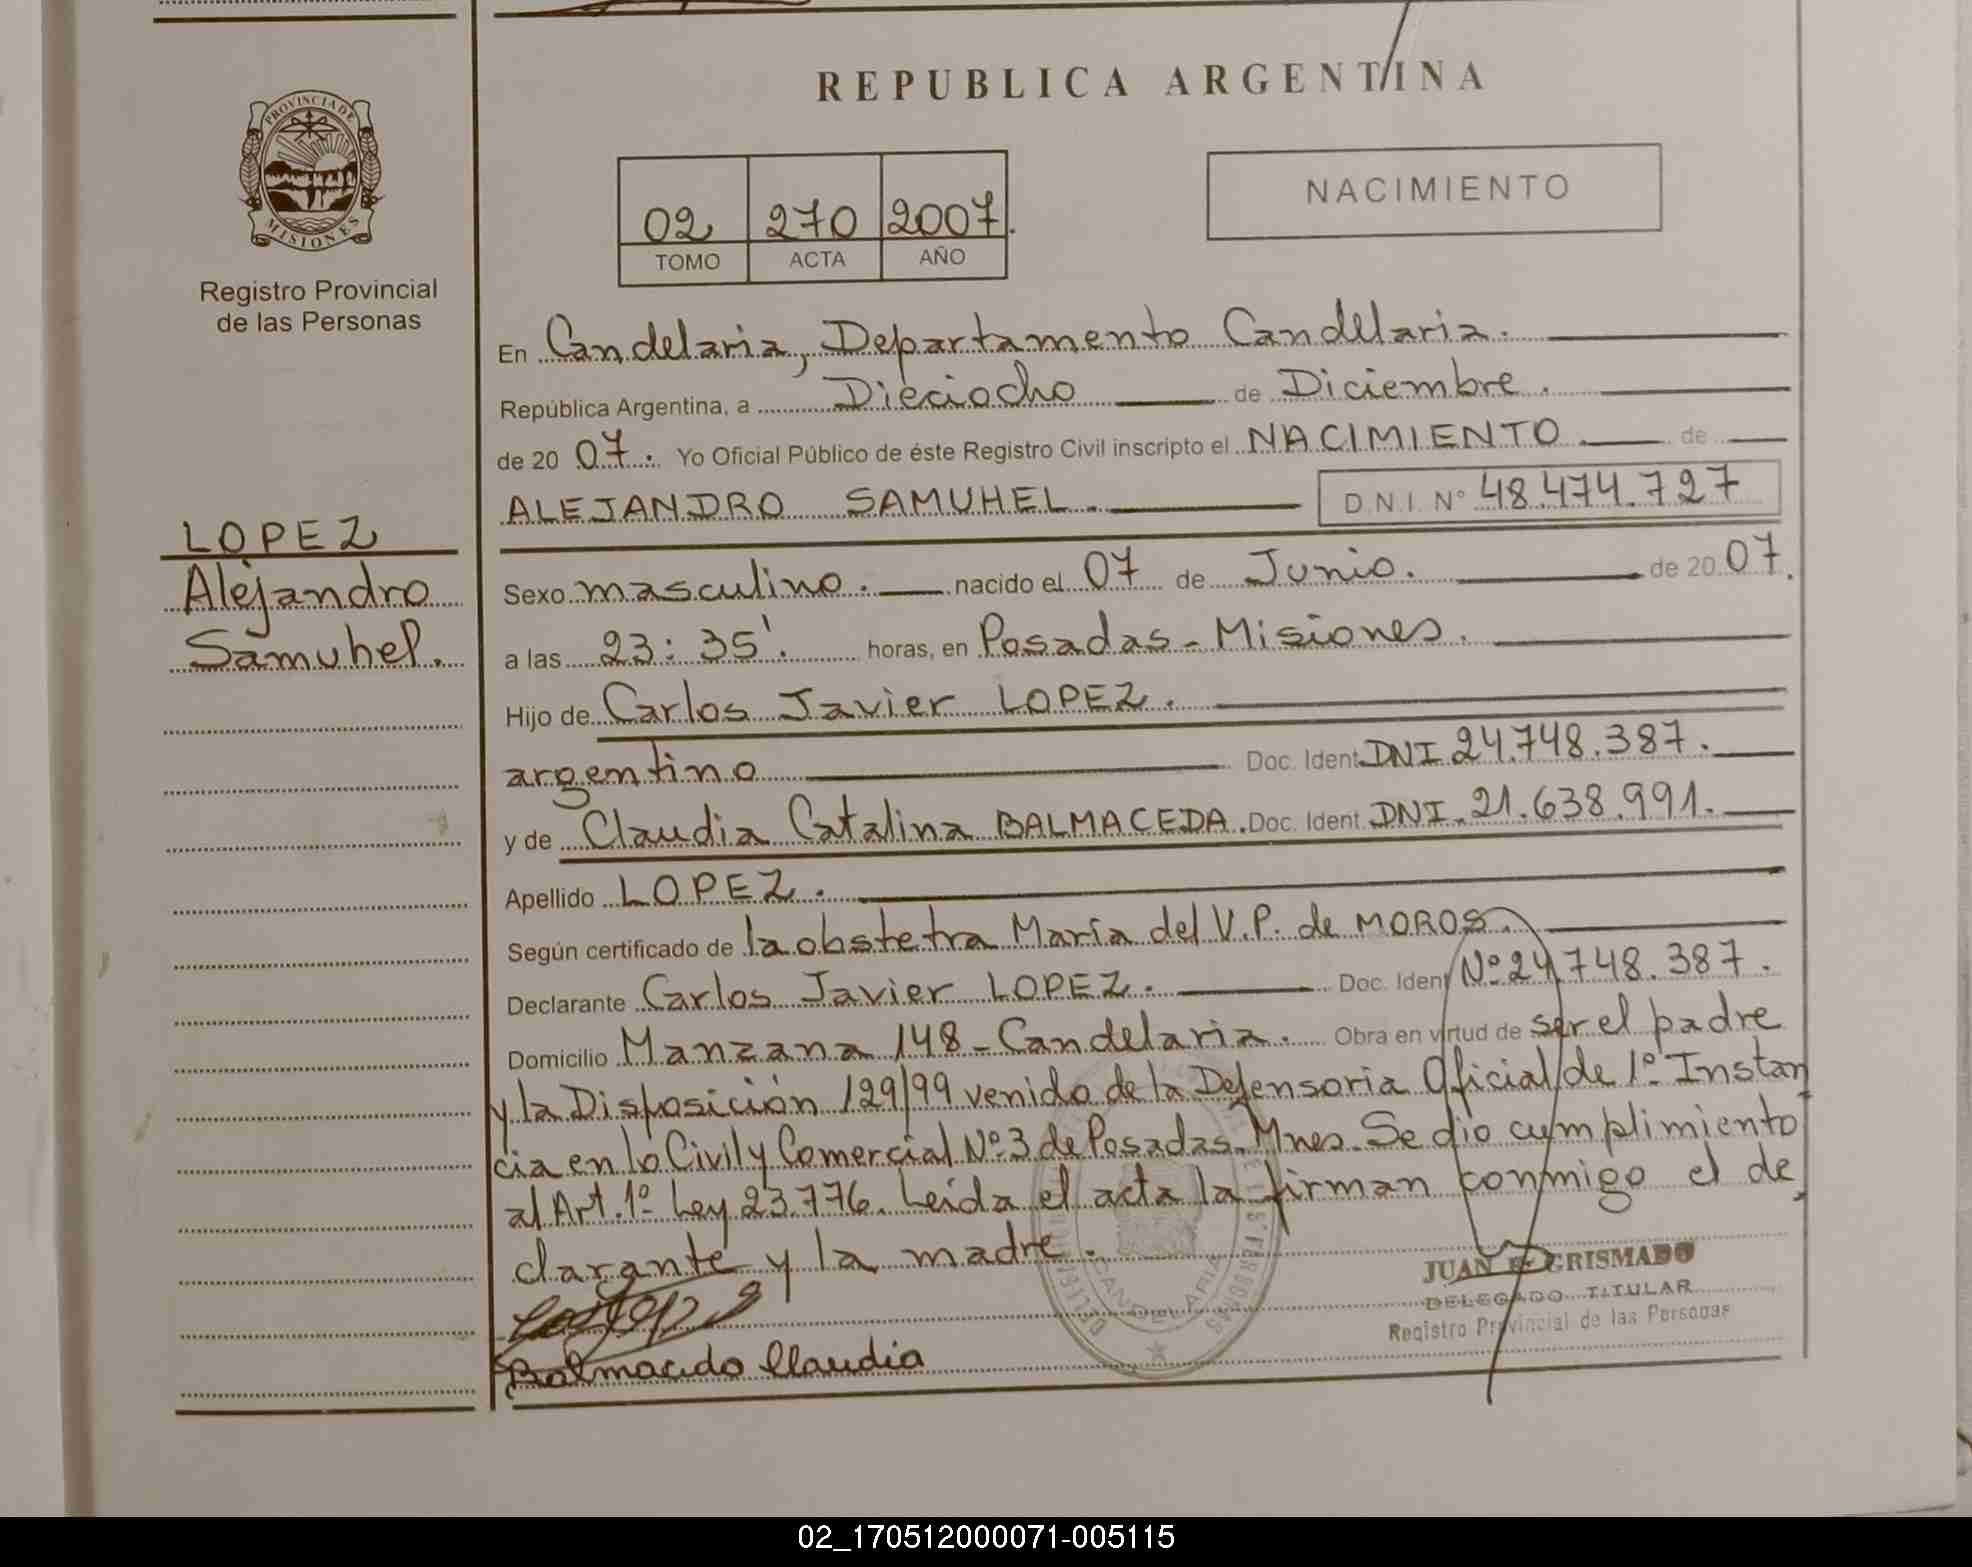 REPUBLICA ARGENTINA
PROVINCIA DE
MISIONES
Registro Provincial
de las Personas
NACIMIENTO
02 270 2007.
TOMO ACTA AÑO
LOPEZ
Alejandro
Samuhel.
En Candelaria, Departamento Candelaria.
República Argentina, a Dieciocho de Diciembre.
de 20 07. Yo Oficial Público de éste Registro Civil inscripto el NACIMIENTO. de
ALEJANDRO SAMUHEL. D.N.I. Nº 48.474.727
Sexo masculino. nacido el 07 de Junio. de 20 07.
a las 23:35'. horas, en Posadas - Misiones.
Hijo de Carlos Javier LOPEZ.
argentino Doc. Ident DNI 24.748.387.
y de Claudia Catalina BALMACEDA. Doc. Ident DNI. 21.638.991.
Apellido LOPEZ.
Según certificado de la obstetra María del V.P. de MOROS.
Declarante Carlos Javier LOPEZ. Doc. Ident Nº 24.748.387.
Domicilio Manzana 148 - Candelaria. Obra en virtud de ser el padre
y la Disposición 129/99 venido de la Defensoria Oficial de 1º Instan
cia en lo Civil y Comercial Nº 3 de Posadas. Mnes. Se dio cumplimiento
al Art. 1º Ley 23.776. Leida el acta la firman conmigo el de
clarante y la madre.
JUAN GRISMADO
DELEGADO TITULAR
Registro Provincial de las Personas
CANDELARIA
Balmacedo Claudia
02_170512000071-005115